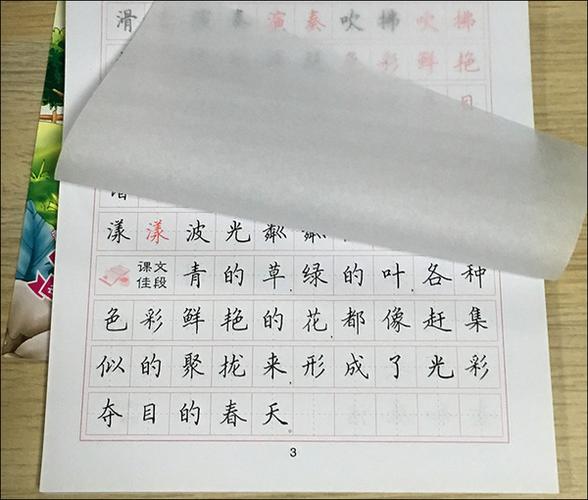 滑演奏演奏吹拂吹拂
彩鲜艳
目
漾漾波光粼粼
课文佳段 青的草,绿的叶,各种
色彩鲜艳的花,都像赶集
似的聚拢来,形成了光彩
夺目的春天。
3